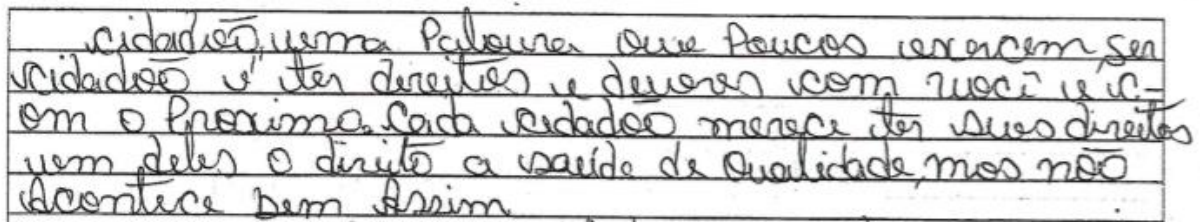 cidadão, uma Palavra que Poucos exercem, ser
cidadão é ter direitos e deveres com você e c-
om o Proximo. Cada cidadão merece ter suas direitos
um deles o direito a saúde de qualidade, mas não
Acontece bem Assim